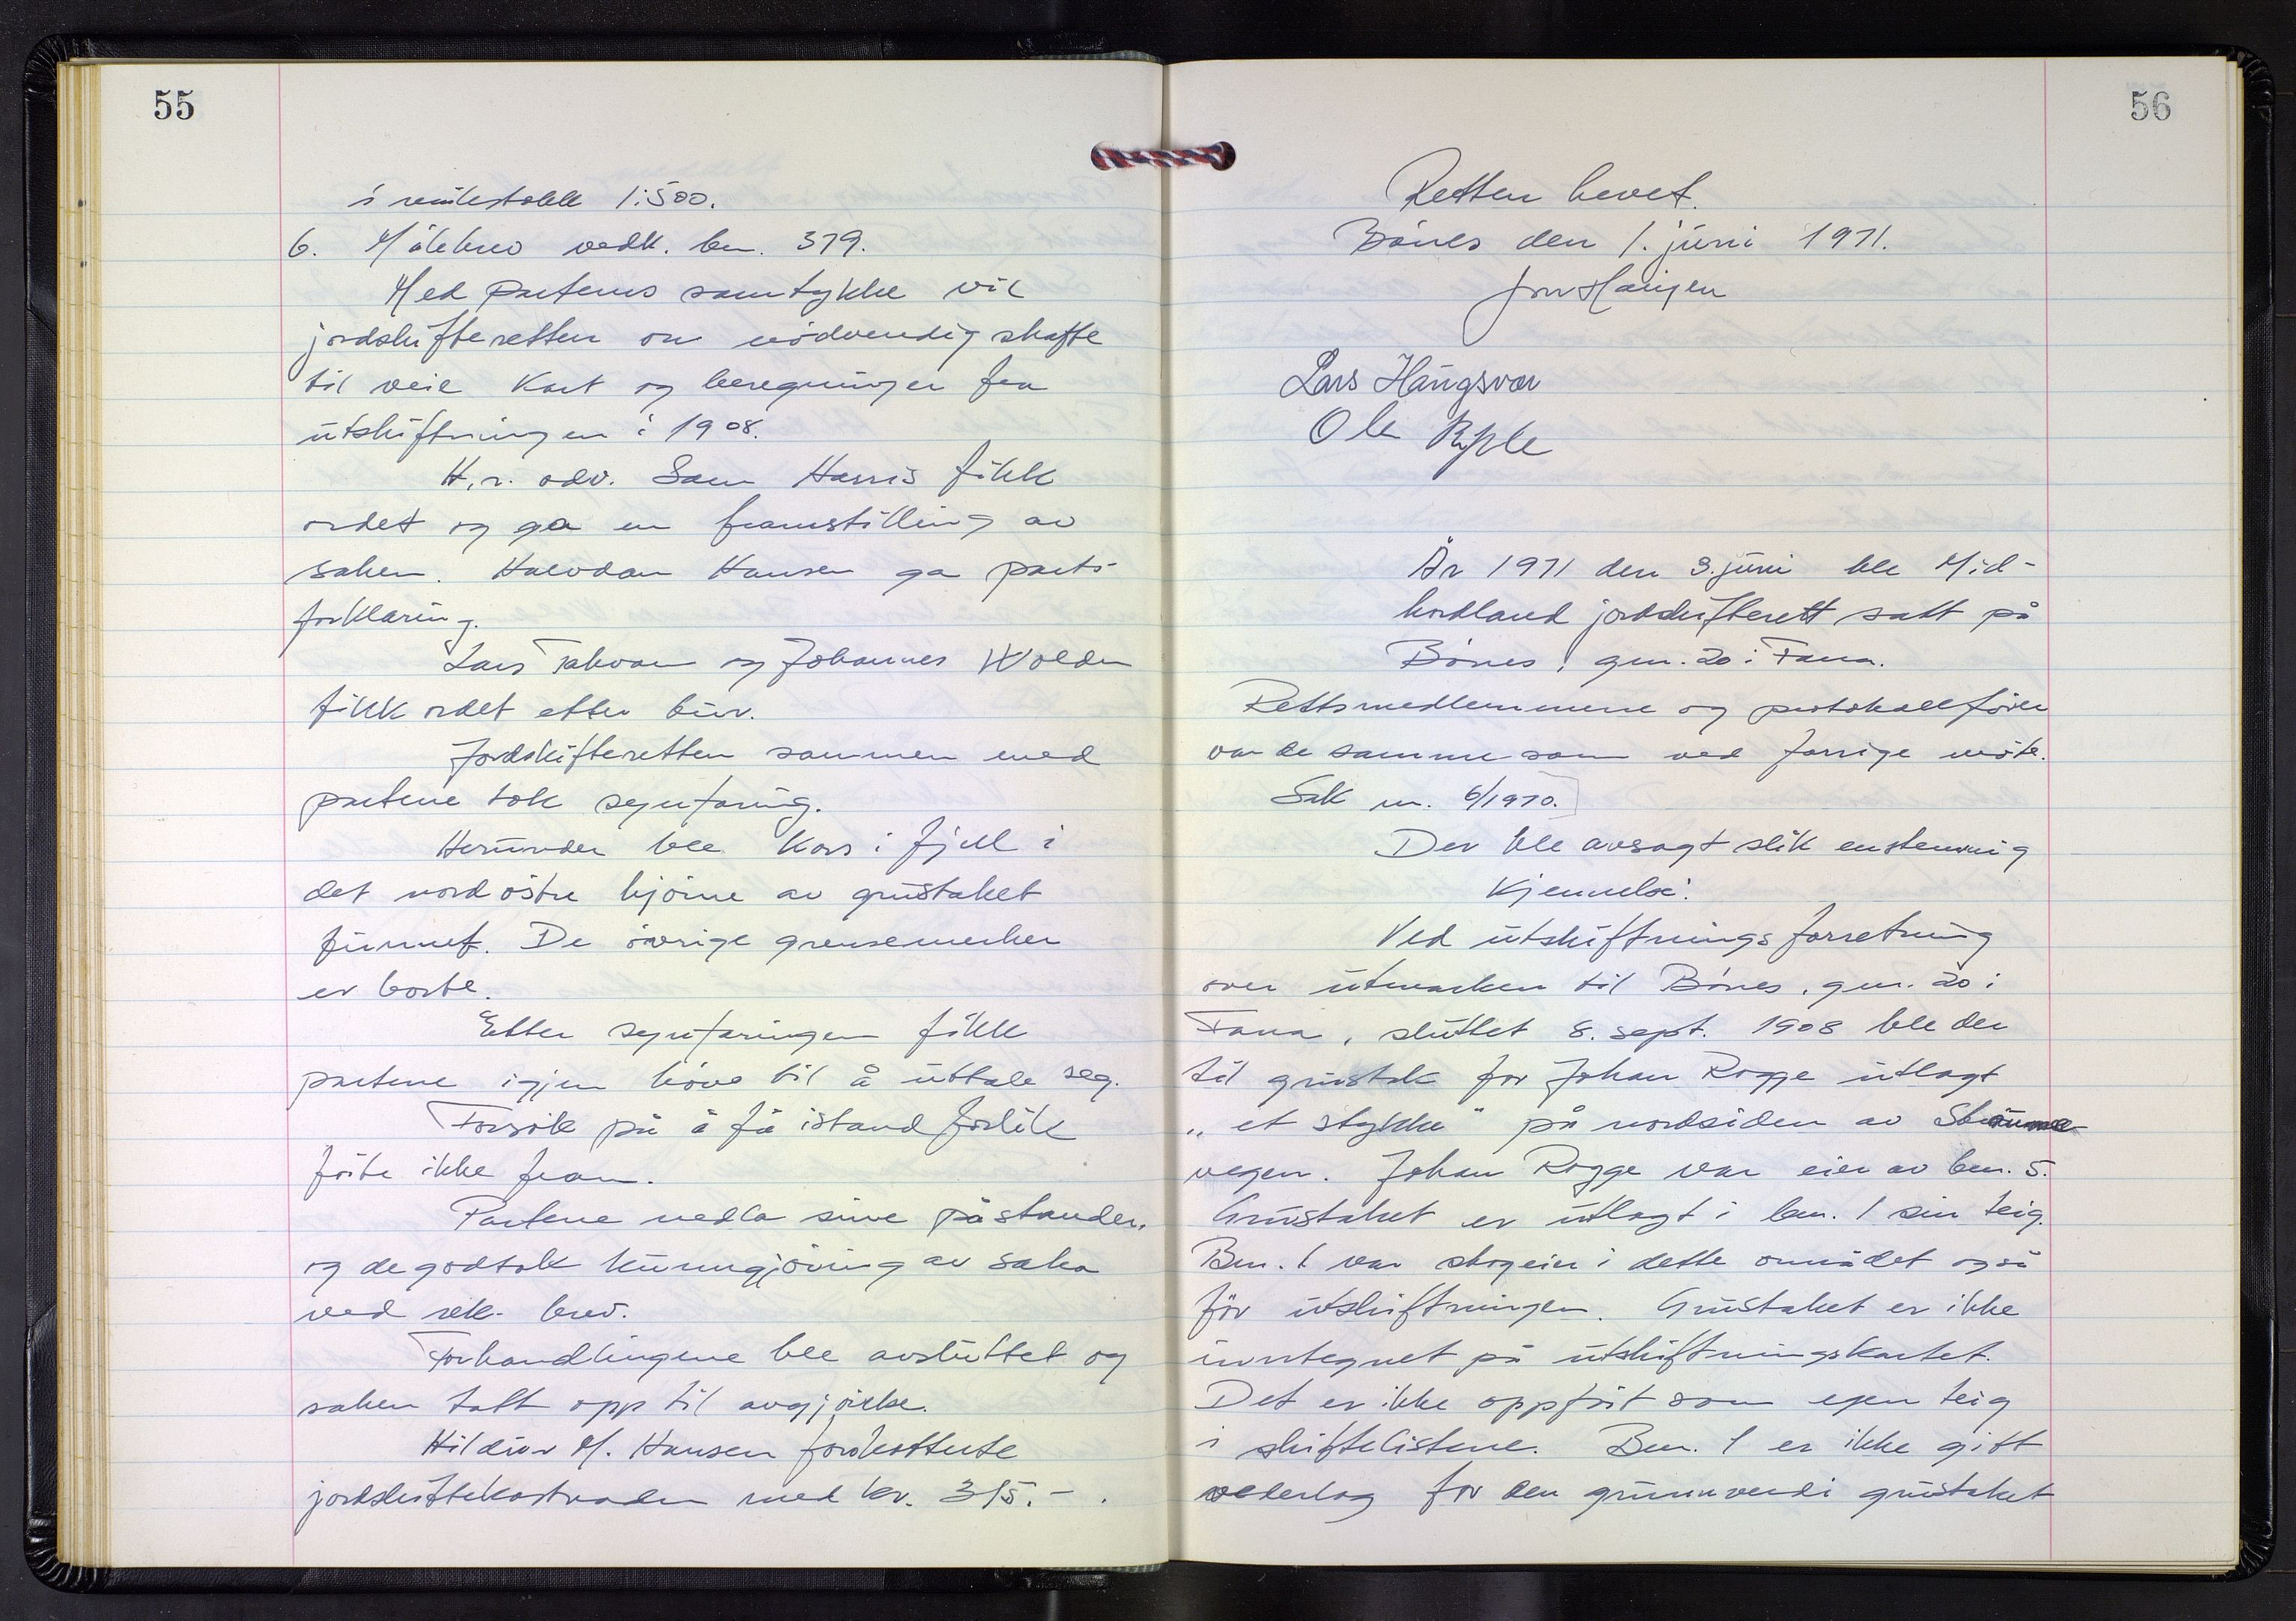 55
i målestokk 1:500.
6. Målebrev vedk. bnr. 379.
Med partenes samtykke vil
jordskifteretten om nödvendig skaffe
til veie kart og beregninger fra
utskiftningen i 1908.
H.r. adv. Sam Harris fikk
ordet og ga en framstilling av
saken. Halvdan Hansen ga parts-
forklaring.
Lars Takvam og Johannes Wolden
fikk ordet etter tur.
Jordskifteretten sammen med
partene tok synfaring.
Herunder ble kors i fjell i
det nordöstre hjörne av grustaket
funnet. De övrige grensemerker
er borte.
Etter synfaringen fikk
partene igjen höve til å uttale seg.
Forsök på å få istand forlik
förte ikke fram.
Partene nedla sine påstander,
og de godtok kunngjöring av saka
ved rek. brev.
Forhandlingene ble avsluttet og
saken tatt opp til avgjörelse.
Hildur M. Hansen forskotterte
jordskiftekostnaden med kr. 315.- .
56
Retten hevet.
Bönes den 1. juni 1971.
Jon Haugen
Lars Haugsvær
Ole
År 1971 den 3. juni ble Mid-
hordland jordskifterett satt på
Bönes, gnr. 20 i Fana.
Rettsmedlemmene og protokollförer
var de samme som ved forrige möte.
Sak nr. 6/1970.
Der ble avsagt slik enstemmig
Kjennelse:
Ved utskiftningsforretning
over utmarken til Bönes, gnr. 20 i
Fana, sluttet 8. sept. 1908 ble der
til grustak for Johan Rogge utlagt
„et stykke" på nordsiden av
vegen. Johan Rogge var eier av bnr. 5.
Grustaket er utlagt i bnr. 1 sin teig.
Bnr. 1 var skogeier i dette området også
för utskiftningen. Grustaket er ikke
inntegnet på utskiftningskartet.
Det er ikke oppfört som egen teig
i skiftelistene. Bnr. 1 er ikke gitt
vederlag for den grunnverdi grustaket